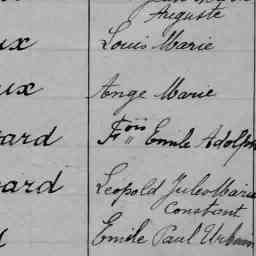 Auguste
ux Louis Marie
ux Ange Marie
ard Fois Emile Adolph
ard Leopold Jules Marie
Constant
d Emile Paul Urbain